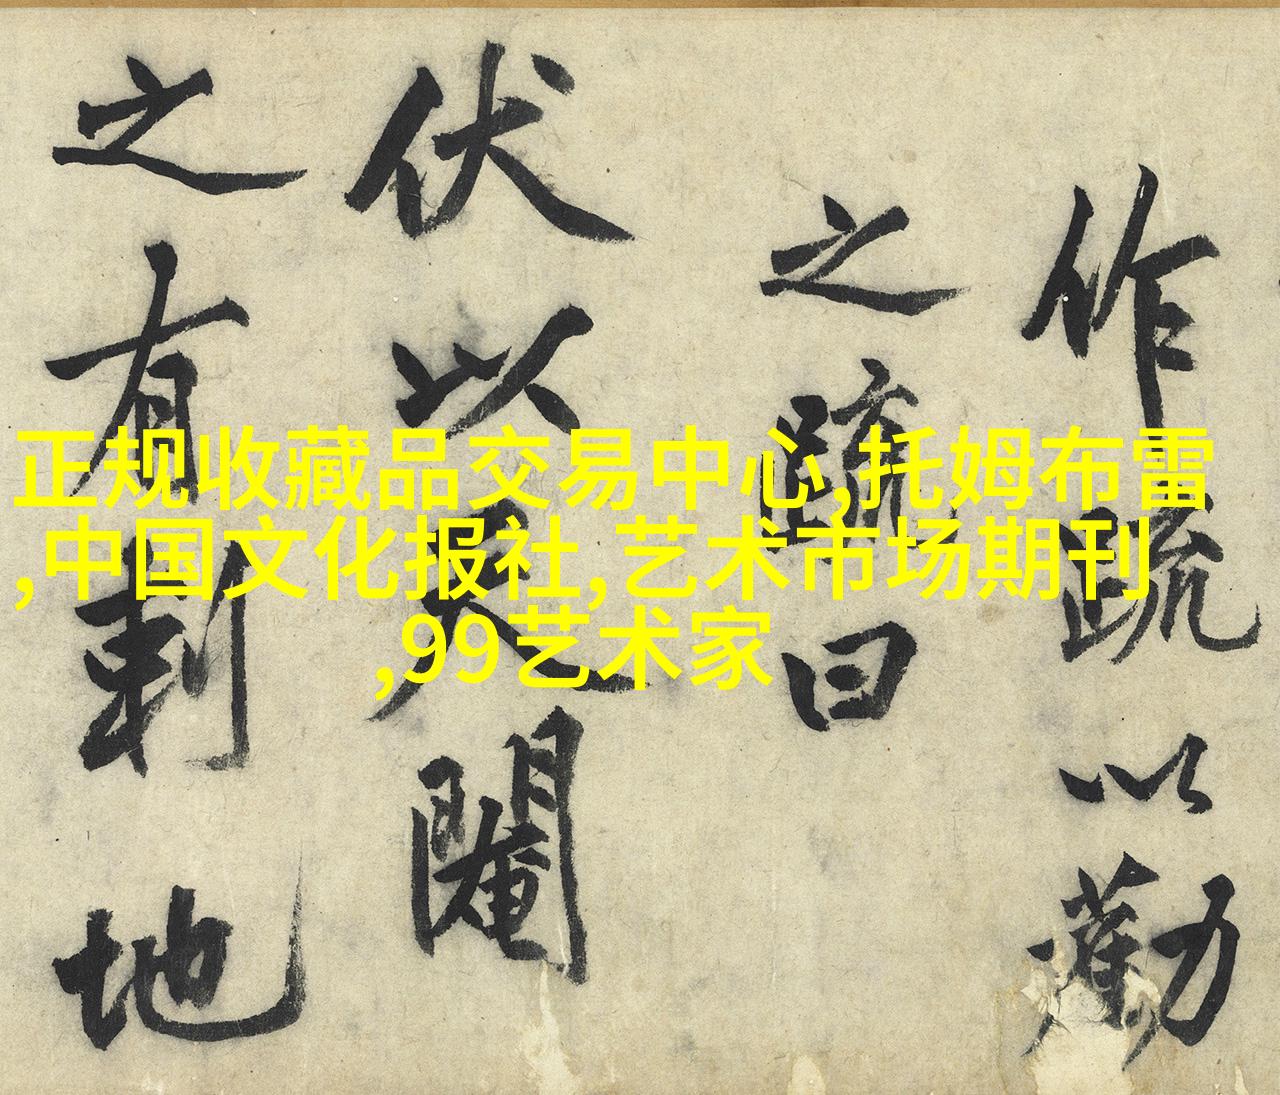 作疏以勸
之疏曰
伏以天閹
之有刺地
正规收藏品交易中心,托姆布雷
,中国文化报社,艺术市场期刊
,99艺术家